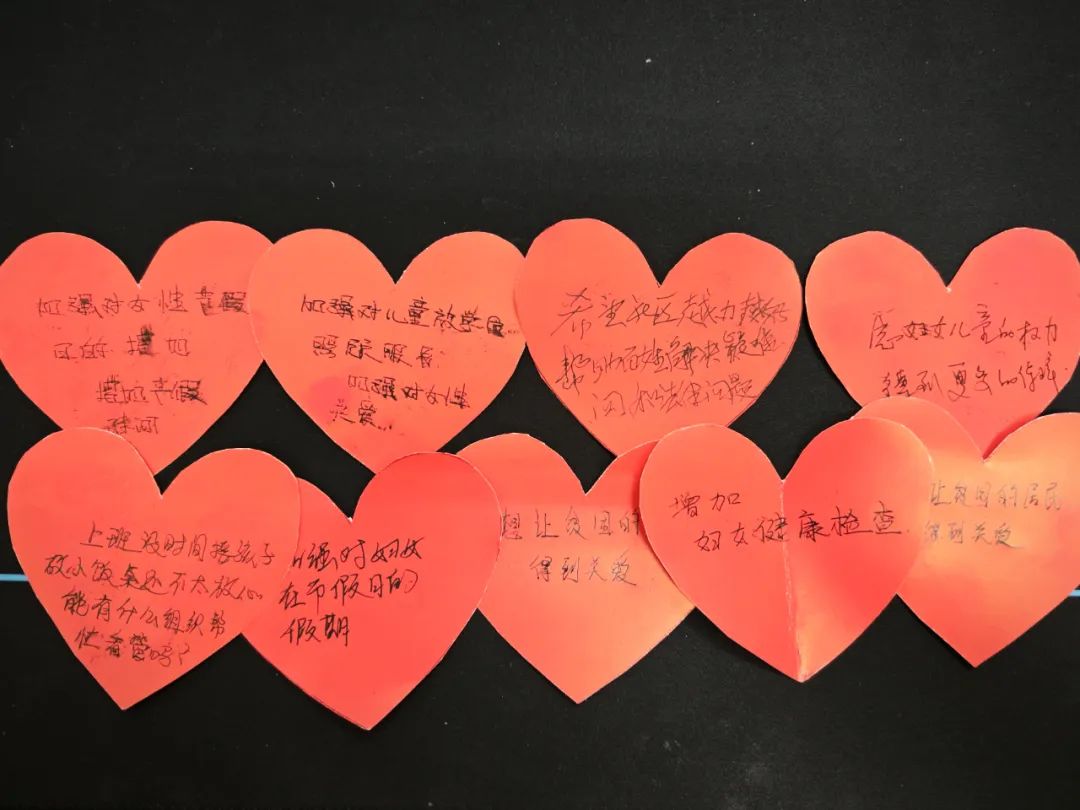 加强对女性节假
日的措施
节假
加强对儿童放学
照顾服务
加强对女性
关爱
希望社区越办越好
帮助
问和找出问题
愿妇女儿童的权力
得到更多的
上班没时间接孩子
放小饭桌还不太放心
能有什么组织帮
忙看管吗？
强对妇女
在节假日的
假期
想让贫困的
得到关爱
增加
妇女健康检查
让贫困的居民
得到关爱